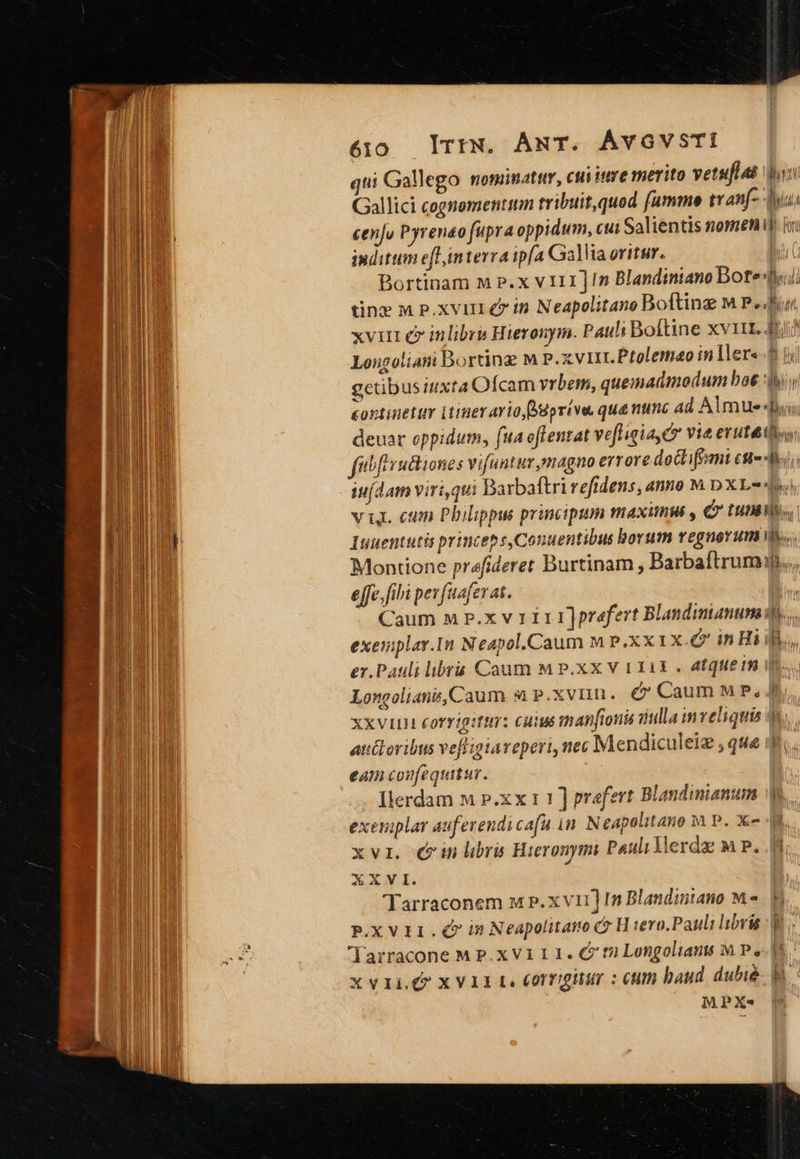 610 ITIN. ANT. AVGVSTI
qui Gallego nominatur, cui iure merito vetuſtas
Gallici cognomentum tribuit, quod ſummo tranſ-
cenſu Pyrenæo ſupra oppidum, cui Salientis nomen
inditum eſt, in terra ipſa Gallia oritur.
Bortinam M P.X VIII] In Blandiniano Bote-
tinæ M P.XVIII & in Neapolitano Boſtinæ M P.
XVIII & in libris Hieronym. Pauli Boſtine XVIII.
Longoliani Bortinæ M P.XVIII. Ptolemæo in Ilerg
getibus iuxta Oſcam vrbem, quemadmodum hoc
continetur itinerario, Βȣρτίνα, quæ nunc ad Almue-
deuar oppidum, ſua oſtentat veſtigia, & viæ eruta
ſubſtructiones viſuntur, magno errore doctiſsimi cu-
iuſdam viri, qui Barbaſtri reſidens, anno M D XL-
VII. cum Philippus principum maximus, & tunc
Iuuentutis princeps, Conuentibus horum regnorum
Montione præſideret Burtinam, Barbaſtrum
eſſe, ſibi perſuaſerat.
Caum M P.X VIIII] præfert Blandinianum
exemplar. In Neapol. Caum M P.XXIX. & in Hi
er. Pauli libris Caum M P.XX VIIII. atque in
Longolianis, Caum M P.XVIIII. & Caum M P.
XXVIIII corrigitur: cuius manſionis nulla in reliquis
auctoribus veſtigia reperi, nec Mendiculeiæ, quæ
eam conſequitur.
Ilerdam M P.XXII] præfert Blandinianum
exemplar auferendi caſu in Neapolitano M P. X-
XVI. & in libris Hieronymi Pauli Ilerdæ M P.
XXVI.
Tarraconem M P.XVII] In Blandiniano M-
P.X VII. & in Neapolitano & Hiero. Pauli libris
Tarracone M P.XVIII. & in Longolianis M P.
XVII. & XVIII. corrigitur: cum haud dubiè
MPX-